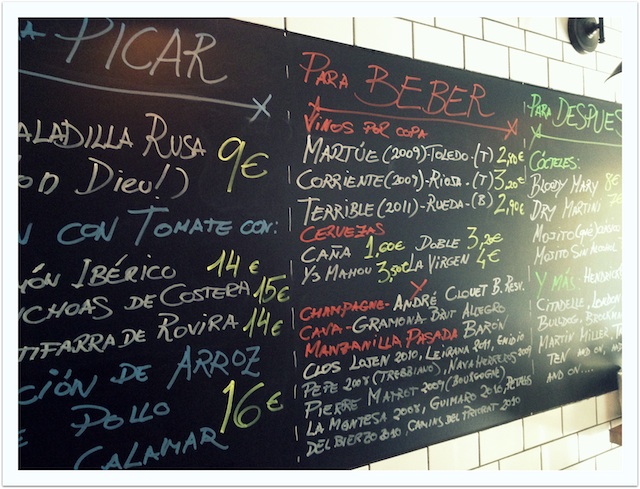 PICAR
ALADILLA RUSA 9€
on Dieu!)
CON TOMATE CON:
IBÉRICO 14€
NCHOAS DE COSTERA 15€
TIFARRA DE ROVIRA 14€
CIÓN DE ARROZ
POLLO 16€
CALAMAR
PARA BEBER
VINOS POR COPA
MARTÚE (2009)-TOLEDO-(T)
CORRIENTE (2009)-RIOJA-(T) 3,20€
TERRIBLE (2011)-RUEDA-(B) 2,90€
CERVEZAS
CAÑA 1,60€ DOBLE 3,20€
MAHOU 3,50€ LA VIRGEN 4€
Y
CHAMPAGNE- ANDRÉ CLOUET B. RESV.
CAVA- GRAMONA BRUT ALLEGRO
MANZANILLA PASADA BARÓN
CLOS LOJEN 2010, LEIRANA 2011,
PEPE 2008 (TREBBIANO), NAVAHERREROS 2009
PIERRE MATROT 2009 (BOURGOGNE)
LA MONTESA 2008, GUIMARO 2010, PETALOS
DEL BIERZO 2010, CAMINS DEL PRIORAT 2010
PARA DESPUES
CÓCTELES:
BLOODY MARY 8€
DRY MARTINI
MOJITO
MOJITO SIN
Y MÁS- HENDRICK'S
CITADELLE, LONDON
BULLDOG- BROCKMAN
MARTIN MILLER
TEN AND ON, AND
AND ON....